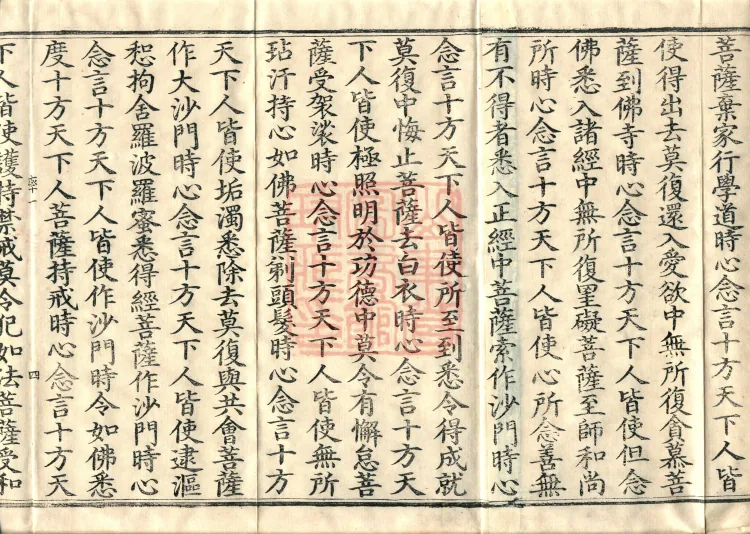 菩薩棄家行學道時心念言十方天下人皆
使得出去莫復還入愛欲中無所復貪慕菩
薩到佛寺時心念言十方天下人皆使但念
佛悉入諸經中無所復罣礙菩薩至師和尚
所時心念言十方天下人皆使心所念善無
有不得者悉入正經中菩薩索作沙門時心
念言十方天下人皆使所至到悉令得成就
莫復中悔止菩薩去白衣時心念言十方天
下人皆使極照明於功德中莫令有懈怠菩
薩受袈裟時心念言十方天下人皆使無所
玷汙持心如佛菩薩剃頭髮時心念言十方
天下人皆使垢濁悉除去莫復與共會菩薩
作大沙門時心念言十方天下人皆使逮漚
惒拘舍羅波羅蜜悉得經菩薩作沙門時心
念言十方天下人皆使作沙門時令如佛悉
度十方天下人菩薩持戒時心念言十方天
四
下人皆使護持禁戒莫令犯如法菩薩受和